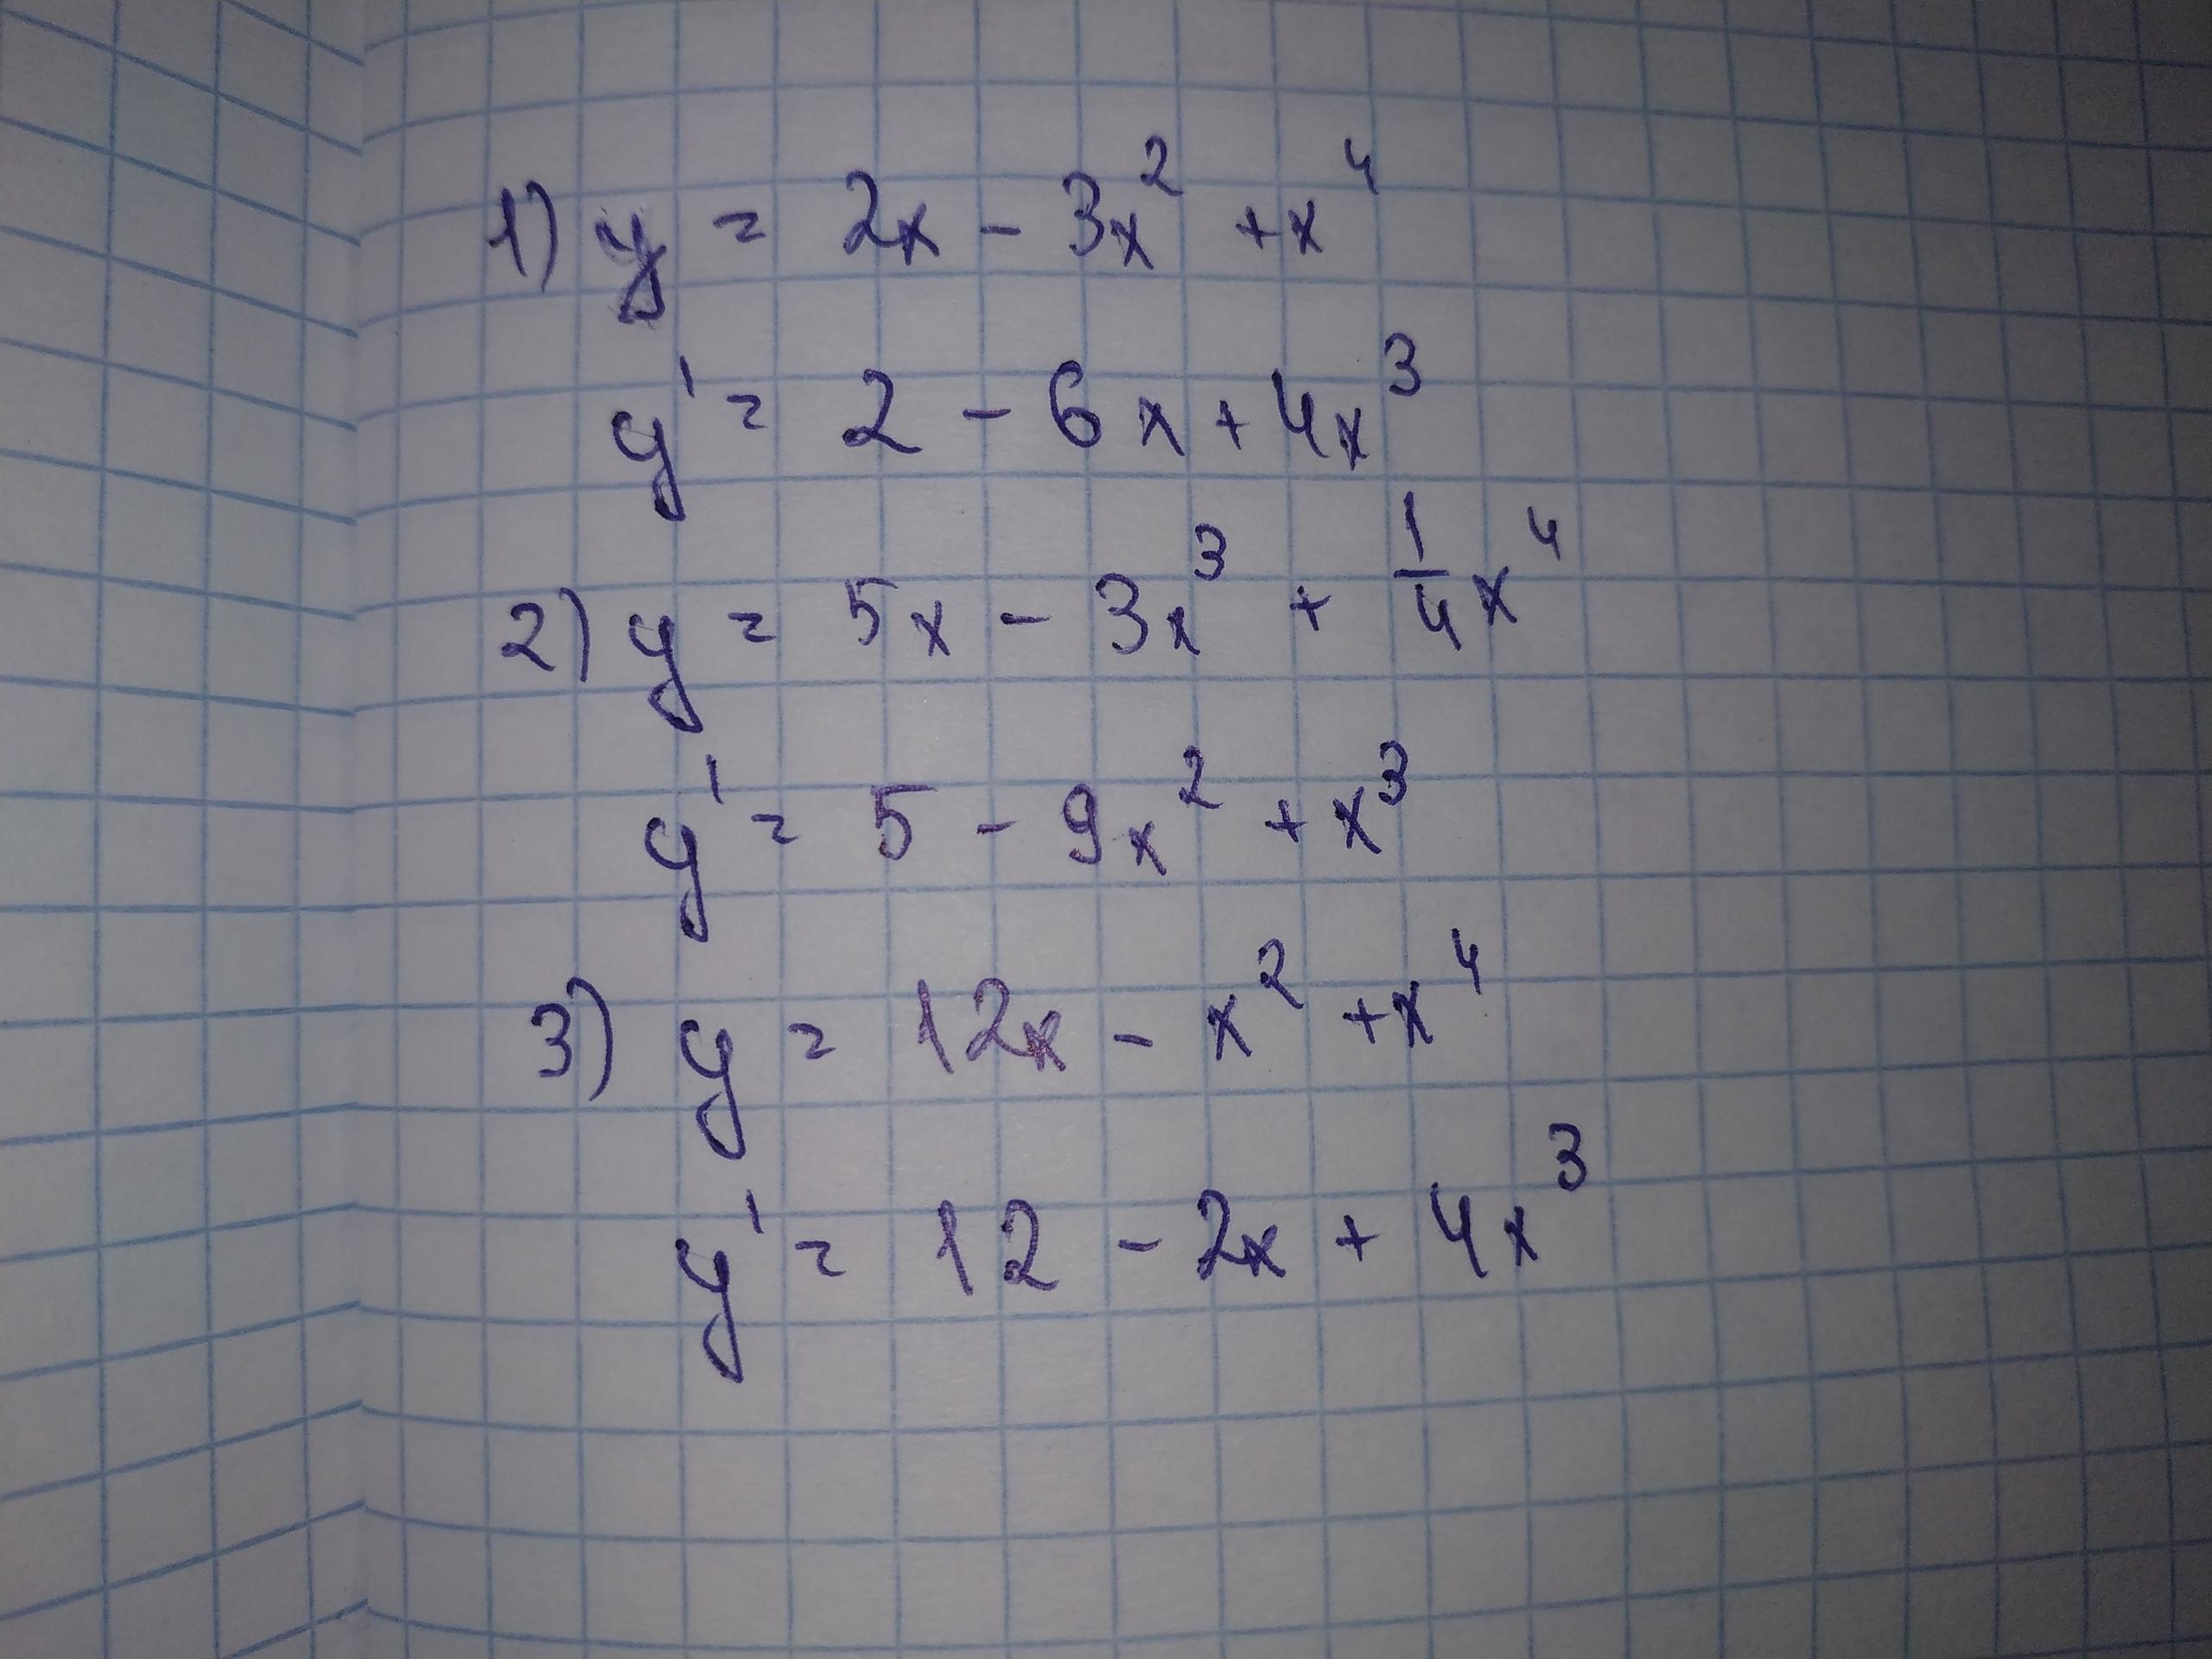 1) y = 2x - 3x² + x⁴
y' = 2 - 6x + 4x³
2) y = 5x - 3x³ + 1/4 x⁴
y' = 5 - 9x² + x³
3) y = 12x - x² + x⁴
y' = 12 - 2x + 4x³